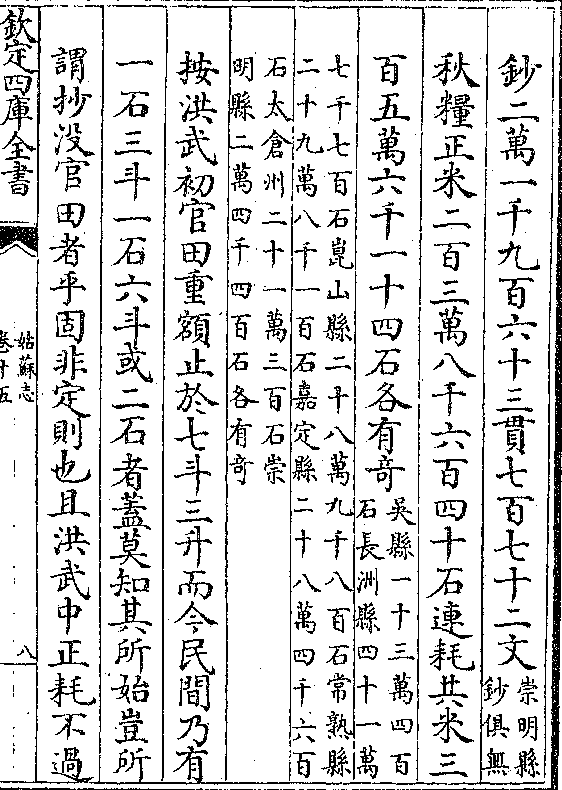 鈔二萬一千九百六十三貫七百七十二文
崇明縣
鈔俱無
秋糧正米二百三萬八千六百四十石連耗共米三
百五萬六千一十四石各有奇
吳縣一十三萬四百
石長洲縣四十一萬
七千七百石崑山縣二十八萬九千八百石常熟縣
二十九萬八千一百石嘉定縣二十八萬四千六百
石太倉州二十一萬三百石崇
明縣二萬四千四百石各有奇
按洪武初官田重額止於七斗三升而今民間乃有
一石三斗一石六斗或二石者蓋莫知其所始豈所
謂抄没官田者乎固非定則也且洪武中正耗不過
欽定四庫全書
姑蘇志
卷十五
八